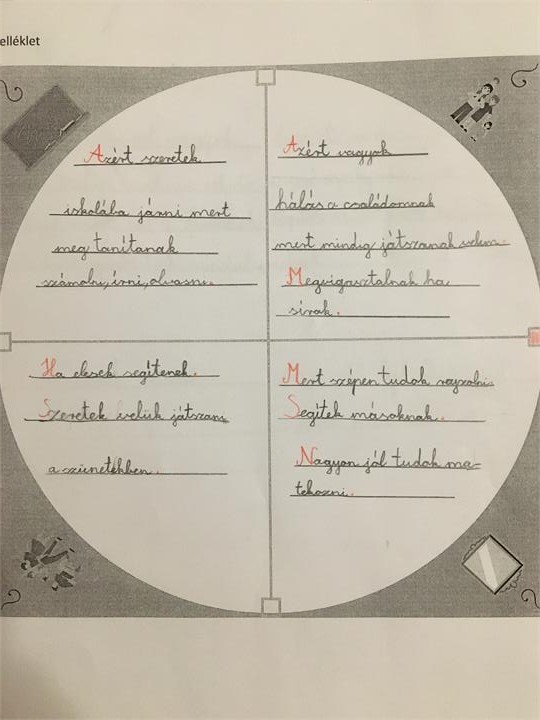 elléklet
Azért szeretek
iskolába járni mert
meg tanítanak
számolni, írni, olvasni.
Azért vagyok
hálás a családomnak
mert mindig játszanak velem.
Megvigasztalnak ha
sírok.
Ha elesek segítenek.
Szeretek velük játszani
a szünetekben.
Mert szépen tudok rajzolni.
Segítek másoknak.
Nagyon jól tudok ma-
tekozni.